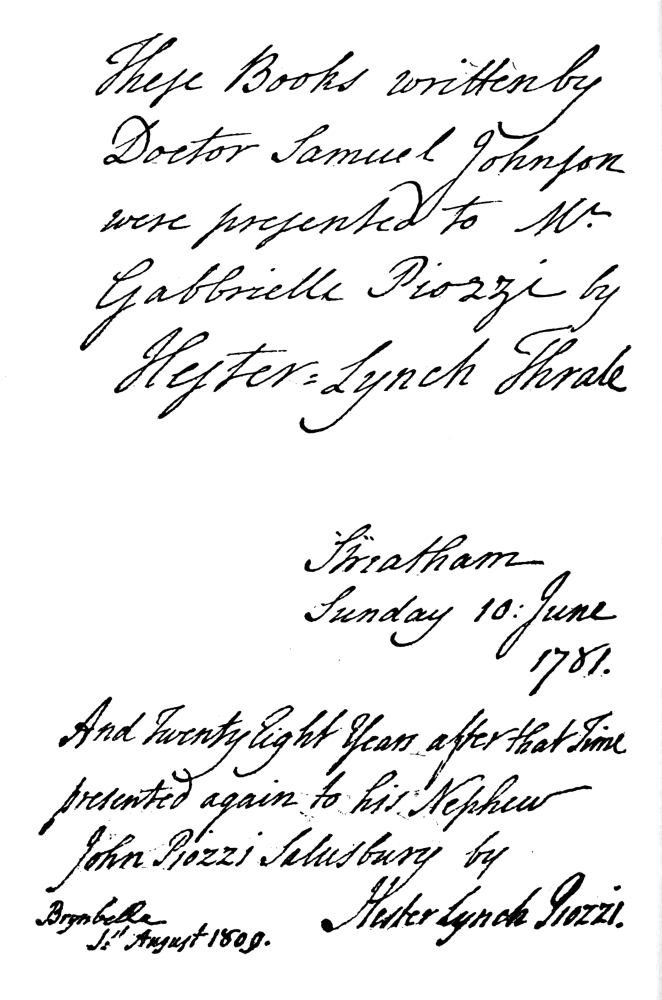 These Books written by
Doctor Samuel Johnson
were presented to Mr.
Gabbrielle Piozzi by
Hester=Lynch Thrale
Streatham
Sunday 10: June
1781.
And Twenty Eight Years after that Time
presented again to his Nephew
John Piozzi Salusbury by
Hester Lynch Piozzi.
Brynbella
1st August 1809.